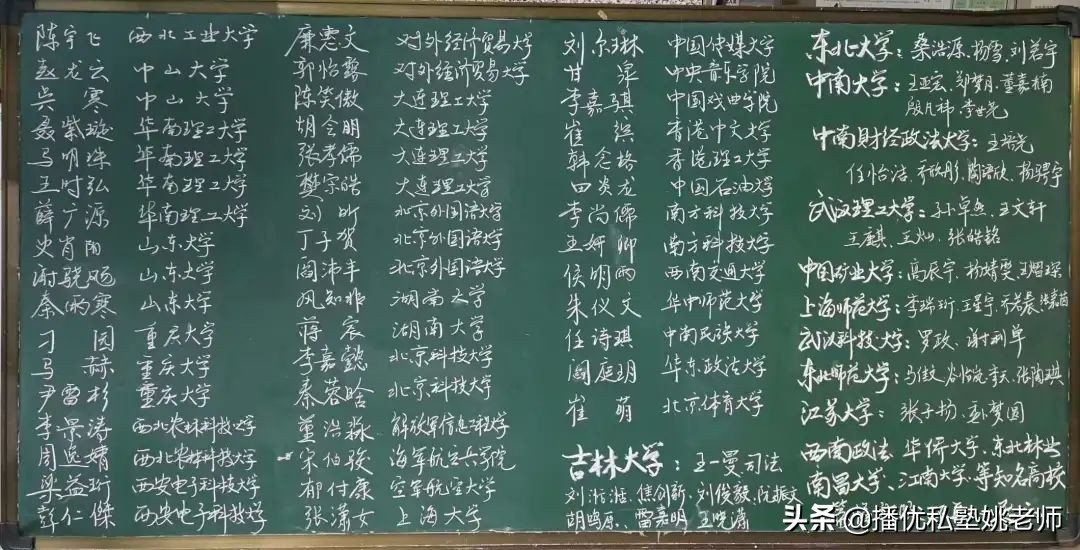 陈宇飞 西北工业大学
赵龙云 中山大学
吴寒 中山大学
聂紫璇 华南理工大学
马明珠 华南理工大学
王时弘 华南理工大学
薛广源 华南理工大学
史肖阳 山东大学
谢骁飏 山东大学
秦雨寒 山东大学
刁园 重庆大学
马赫 重庆大学
尹雷杉 重庆大学
李景涛 西北农林科技大学
周逸婧 西北农林科技大学
梁益珩 西安电子科技大学
彭仁傑 西安电子科技大学
廉惠文 对外经济贸易大学
郭怡露 对外经济贸易大学
陈笑傲 大连理工大学
胡令明 大连理工大学
张孝儒 大连理工大学
樊宗皓 大连理工大学
刘昕 北京外国语大学
丁子贺 北京外国语大学
阎沛丰 北京外国语大学
湖南大学
蒋宸 湖南大学
李嘉懿 北京科技大学
秦蓉晗 北京科技大学
董浩淼 解放军信息工程大学
宋伯骏 海军航空兵学院
郁付康 空军航空大学
张潇女 上海大学
刘尔琳 中国传媒大学
甘 中央音乐学院
李嘉骐 中国戏曲学院
崔缤 香港中文大学
韩念培 香港理工大学
四炎龙 中国石油大学
李尚儒 南方科技大学
王妍卿 南方科技大学
侯明西 西南交通大学
朱仪文 华中师范大学
任诗琪 中南民族大学
阎庭玥 华东政法大学
崔萌 北京体育大学
吉林大学：王一曼司法
焦创新、刘俊毅、阮振文
胡鸣原、雷嘉明、王晓潇
东北大学：桑浩源、杨雪、刘若宇
中南大学：王亚宏、郑梦月、董嘉楠
殷凡祎、李世光
中南财经政法大学：王培光
任怡洁、陶语欣、杨骋宇
武汉理工大学：孙卓然、王文轩
王赓祺、王灿、张皓铭
中国矿业大学：高辰宇、杨婧雯、王熠琛
上海师范大学：李瑞珩、王星宇、齐若晨、张嘉茵
武汉科技大学：罗政、谢利阜
东北师范大学：马傲、张陶琪
江苏大学：张子扬、王梦圆
西南政法、华侨大学、东北林业
南昌大学、江南大学、等知名高校
头条@播优私塾姚老师